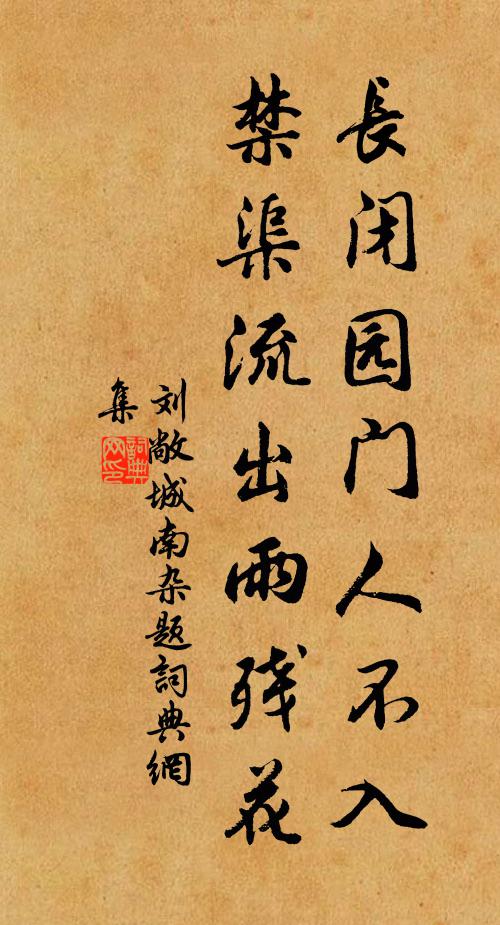 長闭园门人不入
禁渠流出雨残花
刘敞城南杂题詞典網
集
詞典網印